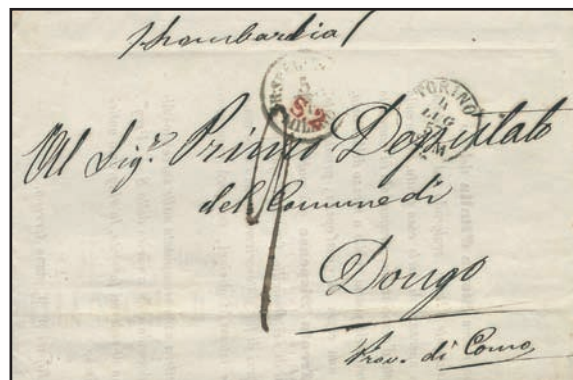 Lombardia
5
S.2
MILANO
TORINO
4
LUG
Al Sig.r Primo Deputato
del Comune di
Dongo
Prov. di Como